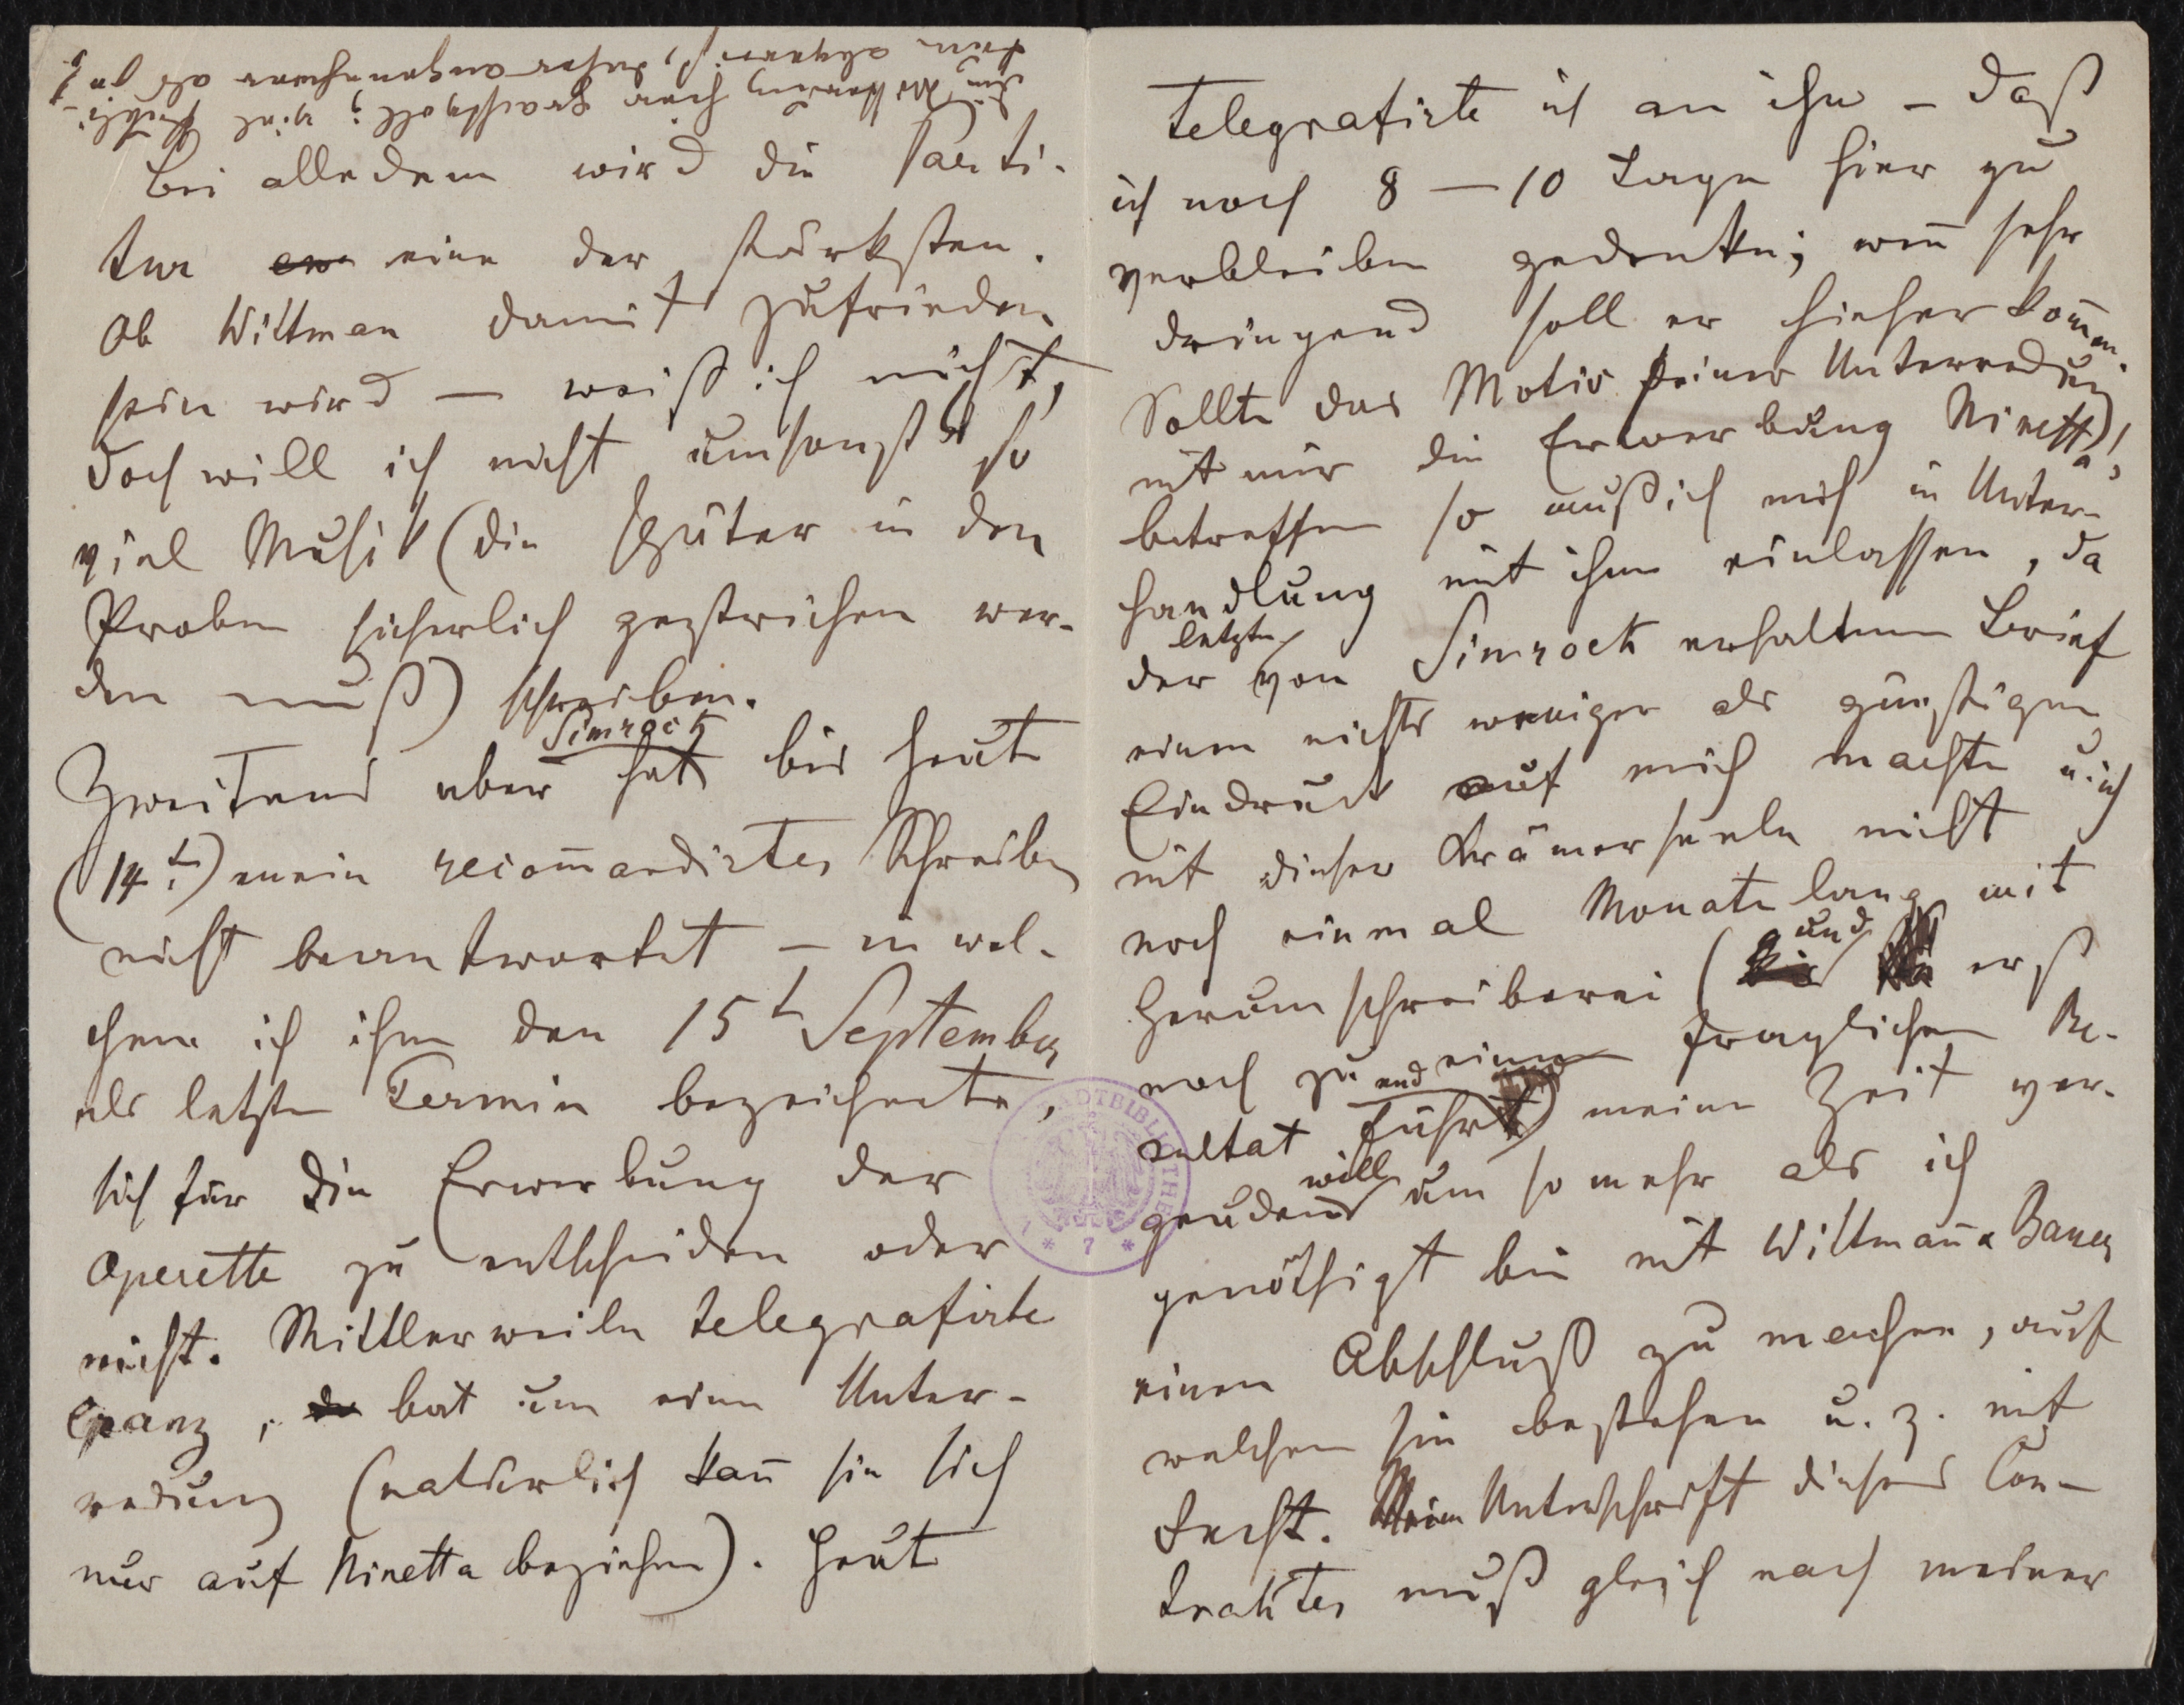 Die Witterung hier prachtvoll; viel Publi-
kum abgereist, daher angenehmer als je
bei alledem wird die Parti-
tur eine der stärksten.
Ob Wittman damit zufrieden
sein wird — weiß ich nicht,
doch will ich nicht umsonst so
viel Musik (die später in den
Proben sicherlich gestrichen wer-
den muß) schreiben.
Zweitens aber hat Simrock bis heute
(14t.) mein recom̅andirtes Schreiben
nicht beantwortet – in wel-
chem ich ihm den 15t September
als letzten Termin bezeichnete,
sich für die Erwerbung der
Operette zu entscheiden oder
nicht. Mittlerweile telegrafirte
Cranz, bat um eine Unter-
redung (natürlich kan̅ sie sich
nur auf Ninetta beziehen). Heute
telegrafirte ich an ihn – daß
ich noch 8 – 10 Tage hier zu
verbleiben gedenke; wen̅ sehr
dringend soll er hieher kom̅en.
Sollte das Motiv seiner Unterredung
mit mir die Erwerbung Ninetta's
betreffen so muß ich mich in Unter-
handlung mit ihm einlassen, da
der letzte von Simrock erhaltene Brief
einen nichts weniger als günstigen
Eindruck auf mich machte u. ich
mit dieser Krämerseele nicht
noch einmal Monate lang mit
Herumschreiberei (und erst
noch zu einem fraglichen Re-
sultat führend) meine Zeit ver-
geuden will um so mehr als ich
genöthigt bin mit Wittman̅ & Bauer
einen Abschluß zu machen, auf
welchen sie bestehen u. z. mit
Recht. Die Unterschrift dieses Con-
traktes muß gleich nach meiner